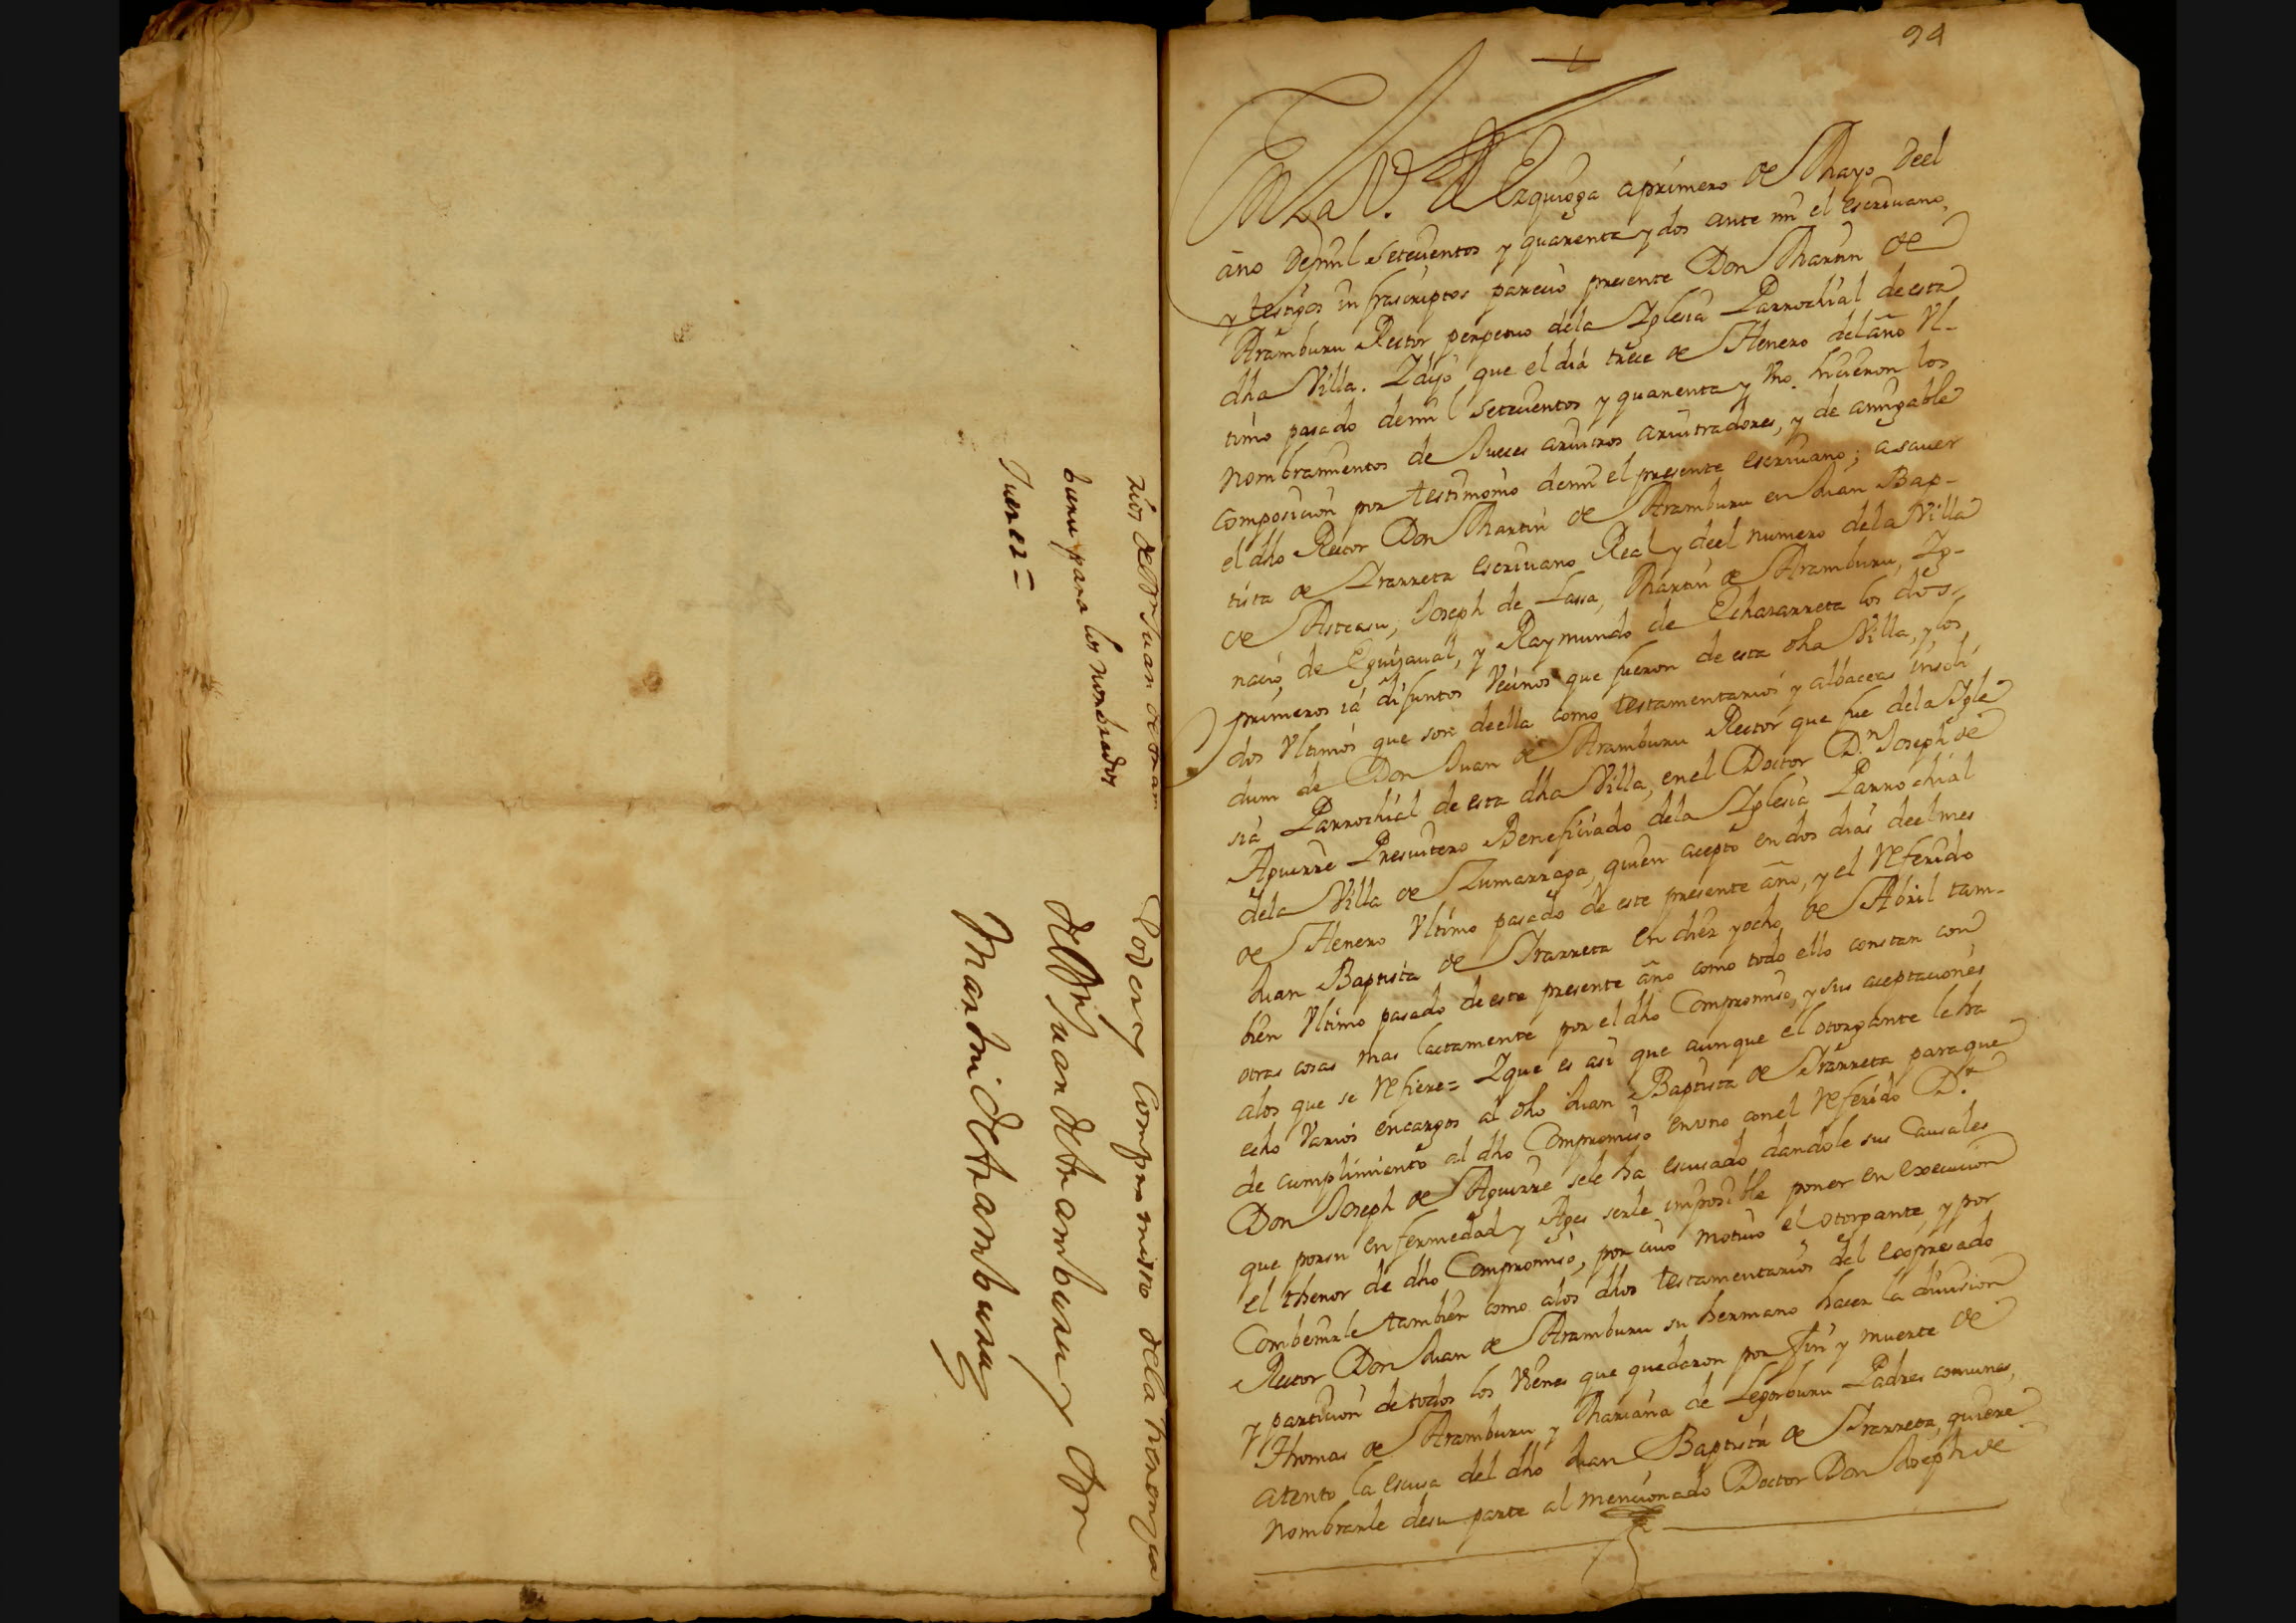 Poder y Compromisso dela herencia
de Dn Juan de Aramburu y Dn
Martin de Aramburu
rios de Dn Juan de Aram
buru para los nombrados
Jueces =
94
En la V.ª de Ezquioga a primero de Mayo deel
año de mil setecientos y quarenta y dos ante mi el escrivano,
y testigos infrascriptos parecio presente Don Martin de
Aramburu Rector perpetuo dela Iglesia Parrochial de esta
dha Villa. I dijo que el dia trece de Henero del año Vl-
timo pasado de mil setecientos y quarenta y Vno. hicieron los
nombramientos de Jueces arvitros arvitradores, y de amigable
composicion por testimonio de mi el presente escrivano; a saver
el dho Rector Don Martin de Aramburu en Juan Bap-
tista de Irarreta escrivano Real y deel numero dela Villa
de Asteasu, Joseph de Lassa, Martin de Aramburu, Ig-
nacio de Eguizaval, y Raymundo de Echazarreta los dos
primeros iá difuntos Vecinos que fueron de esta dha Villa, y los
dos Vltimos que son de ella como testamentarios y albaceas insoli
dum de Don Juan de Aramburu Rector que fue dela Igle
sia Parrochial de esta dha Villa, en el Doctor D.n Joseph de
Aguirre Presvitero Beneficiado dela Iglesia Parrochial
dela Villa de Zumarraga, quien acepto en dos dias deel mes
de Henero Vltimo pasado de este presente año, y el Referido
Juan Baptista de Irarreta en diez y ocho de Abril tam-
bien Vltimo pasado de este presente año como todo ello constan con
otras cosas mas lactamente por el dho Compromiso, y sus aceptaciones
alos que se Refiere = I que es asi que aunque el otorgante le ha
echo Varios encargos al dho Juan Baptista de Irarreta para que
de cumplimiento al dho Compromiso en vno con el Referido D.r
Don Joseph de Aguirre se le ha escusado dandole sus Causales
que por su enfermedad y Ages serle imposible poner en execucion
el thenor de dho Compromiso, por cuio motivo el otorgante, y por
Combenirle tambien como alos dhos testamentarios del expresado
Rector Don Juan de Aramburu su hermano hacer la division
y particion de todos los Vienes que quedaron por fin y muerte de
Thomas de Aramburu y Mariana de Legorburu Padres comunes,
atento la escusa del dho Juan Baptista de Irarreta, quiere
nombrarle de su parte al mencionado Doctor Don Joseph de